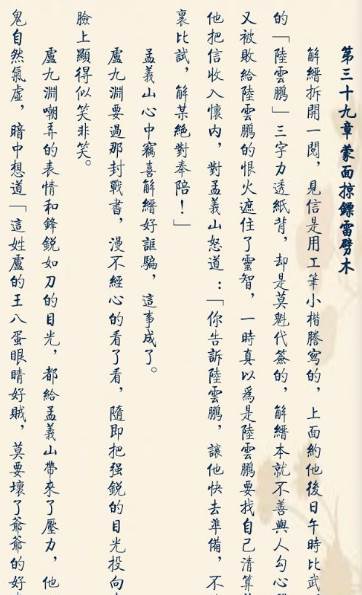 第三十九章 蒙面掠鏢雷劈木
解縉拆開一閱，見信是用工筆小楷謄寫的，上面約他後日午時比武，
的「陸雲鵬」三字力透紙背，却是莫魁代簽的，解縉本就不善與人勾心
又被敗給陸雲鵬的恨火遮住了靈智，一時真以爲是陸雲鵬要找自己清算
他把信收入懷內，對孟義山怒道：「你告訴陸雲鵬，讓他快去準備，不
裏比試，解某絕對奉陪！」
孟義山心中竊喜解縉好誆騙，這事成了。
盧九淵要過那封戰書，漫不經心的看了看，隨即把强銳的目光投向
臉上顯得似笑非笑。
盧九淵嘲弄的表情和鋒銳如刀的目光，都給孟義山帶來了壓力，他
鬼自然氣虛，暗中想道「這姓盧的王八蛋眼睛好賊，莫要壞了爺爺的好